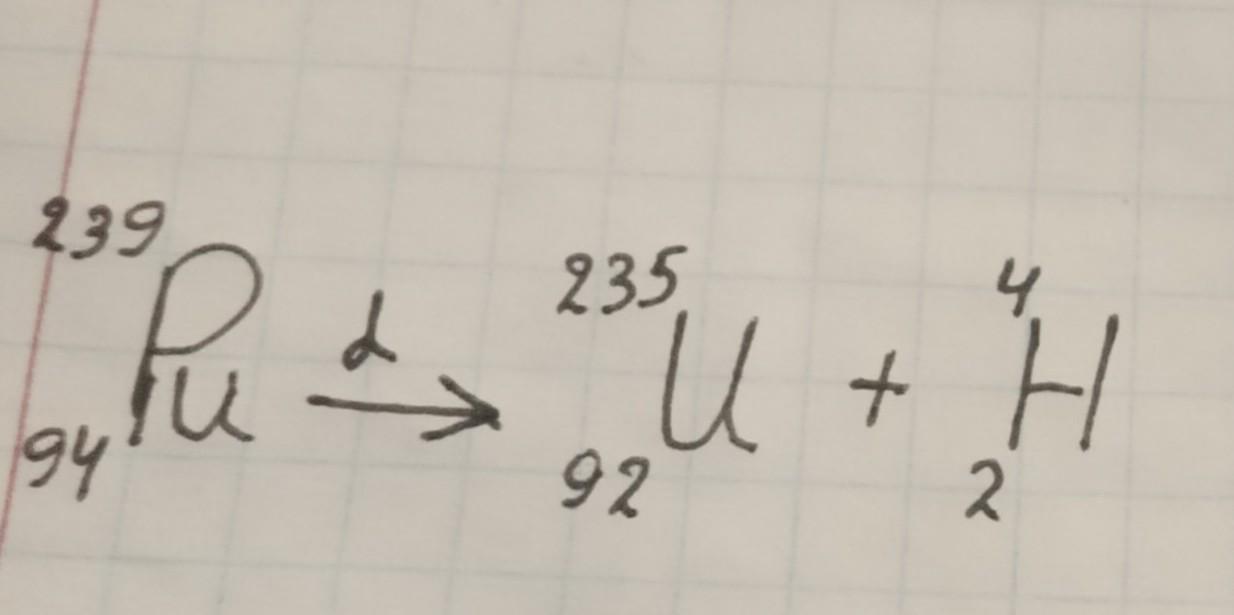 ²³⁹₉₄Pu →^α ²³⁵₉₂U + ⁴₂H